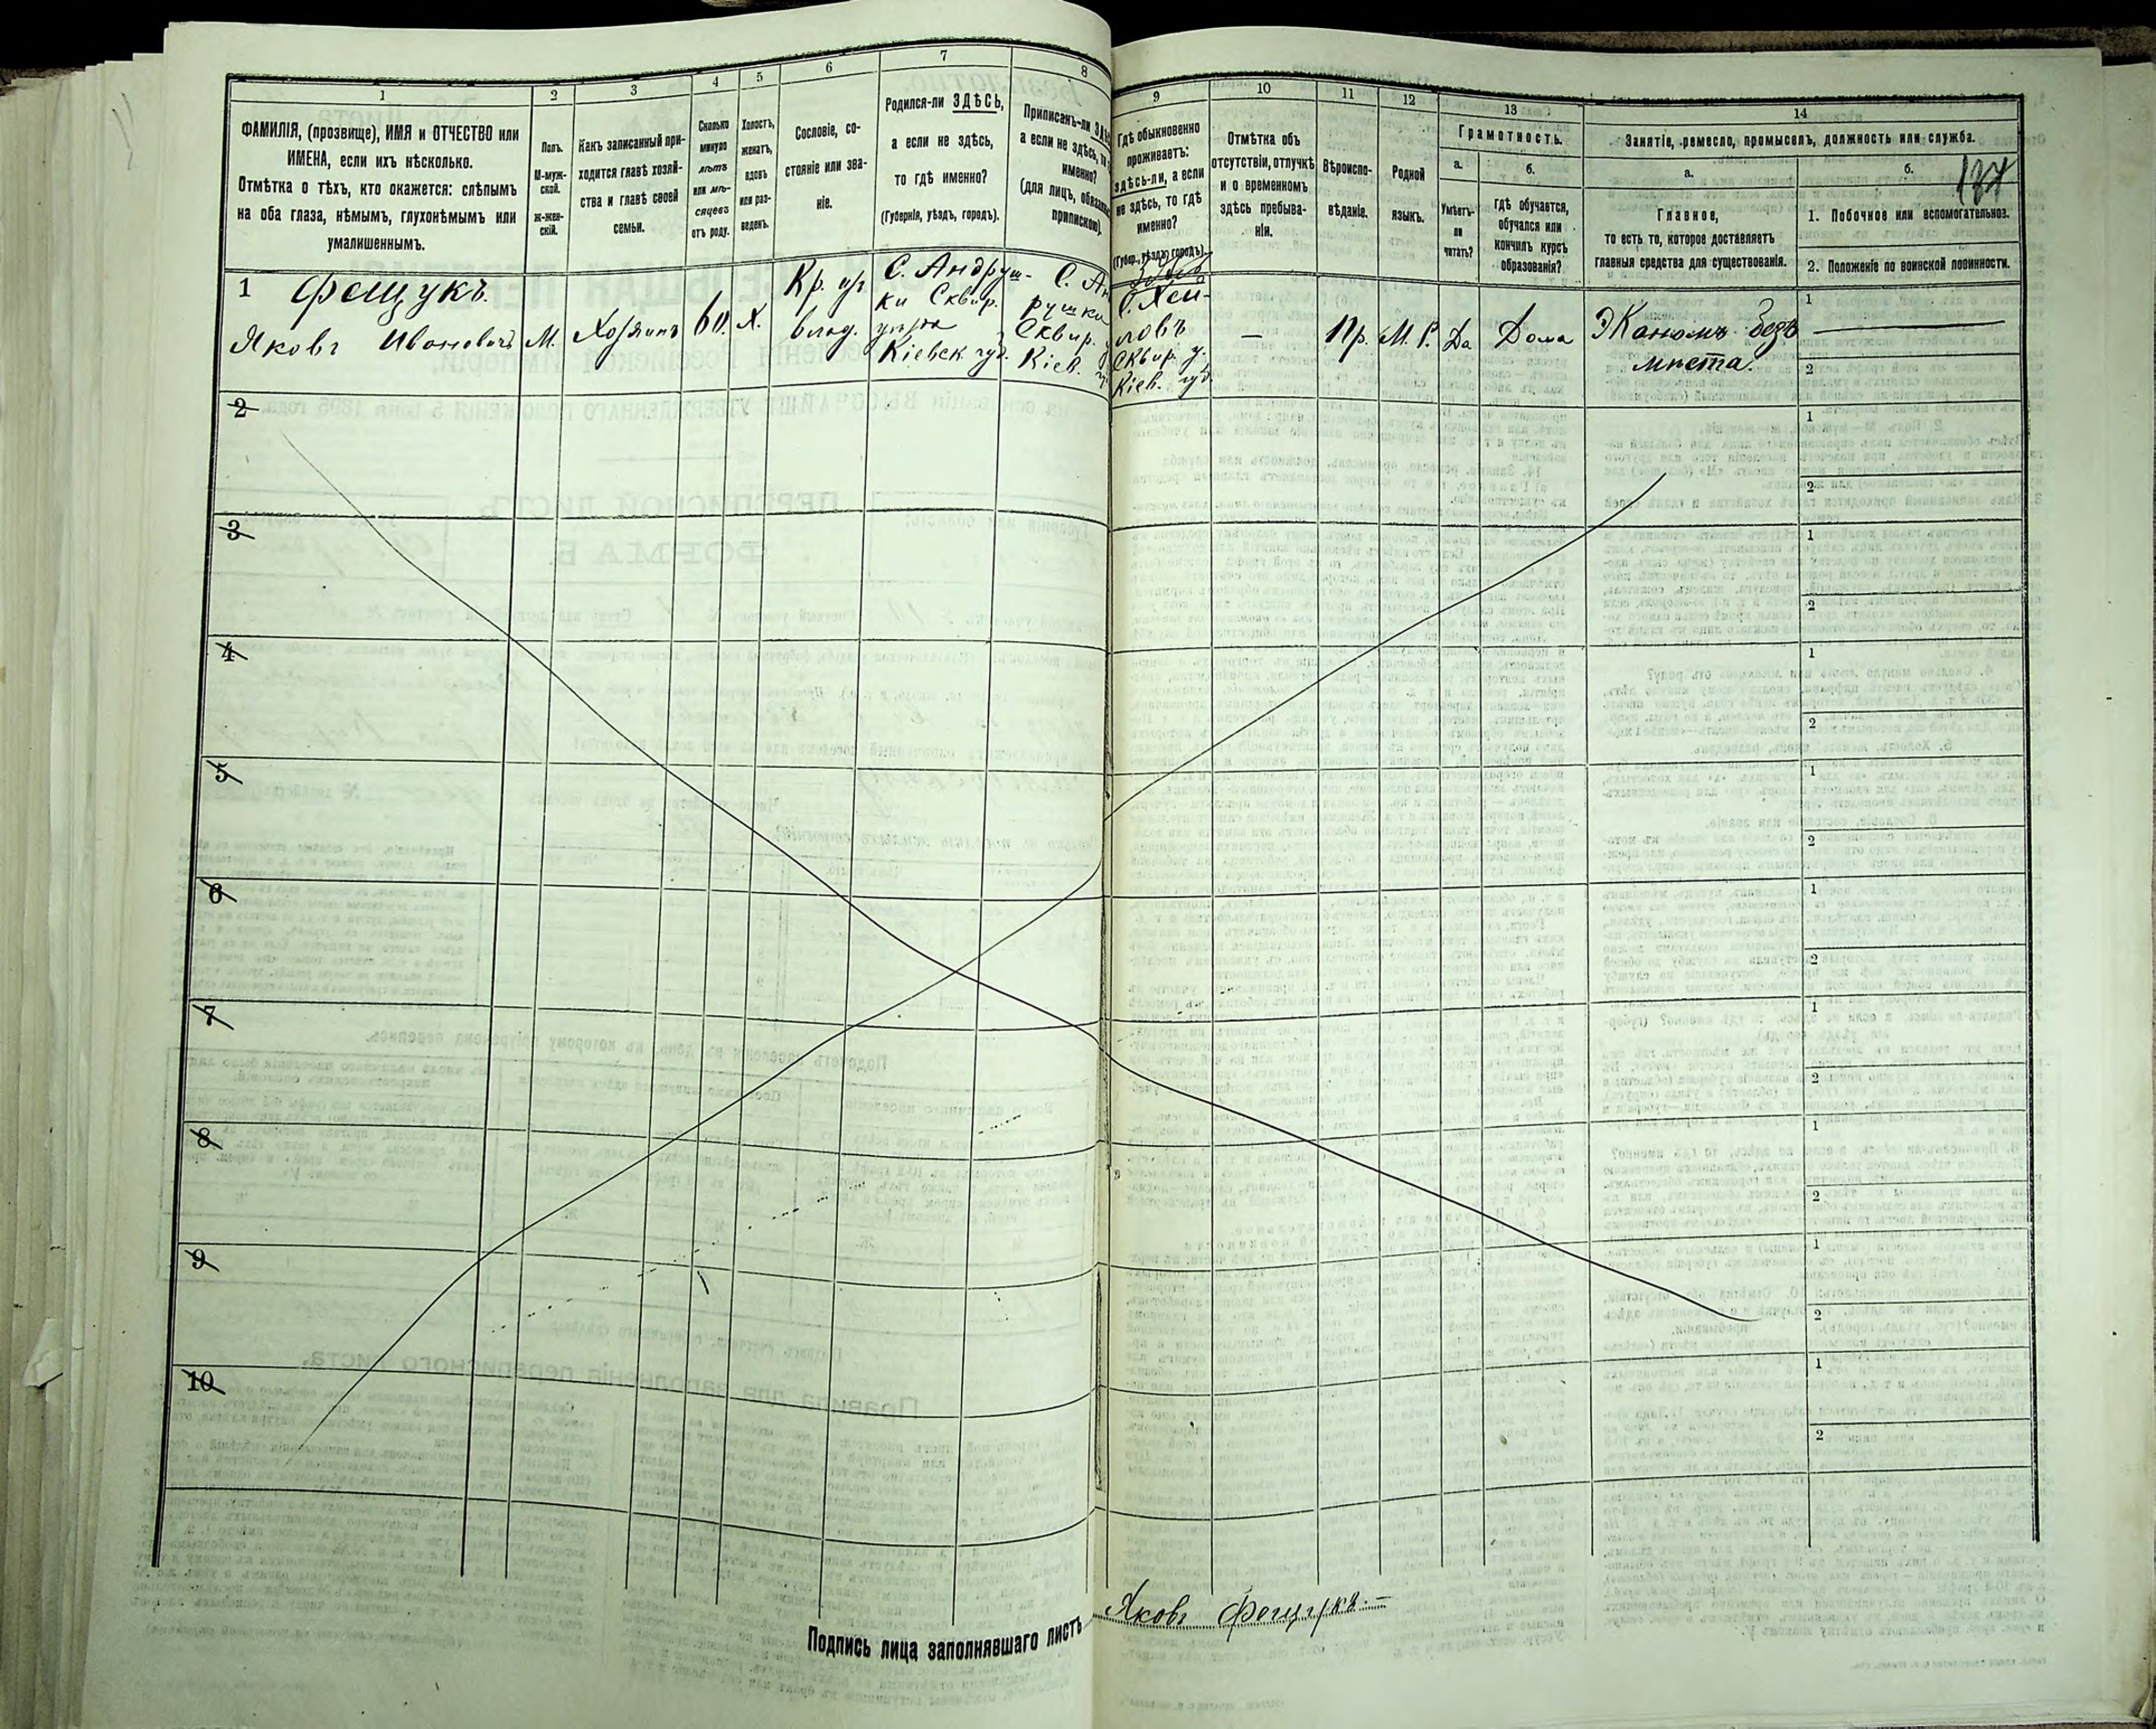 1
2
3
4
5
6
7
8
9
10
11
12
13
14
ФАМИЛІЯ, (прозвище), ИМЯ и ОТЧЕСТВО или
ИМЕНА, если ихъ нѣсколько.
Отмѣтка о тѣхъ, кто окажется: слѣпымъ
на оба глаза, нѣмымъ, глухонѣмымъ или
умалишеннымъ.
Полъ.
М-муж-
ской.
ж-жен-
скій.
Какъ записанный при-
ходится главѣ хозяй-
ства и главѣ своей
семьи.
Сколько
минуло
лѣтъ
или мѣ-
сяцевъ
отъ роду.
Холостъ,
женатъ,
вдовъ
или раз-
веденъ.
Сословіе, со-
стояніе или зва-
ніе.
Родился-ли ЗДѢСЬ,
а если не здѣсь,
то гдѣ именно?
(Губернія, уѣздъ, городъ).
Приписанъ-ли
а если не здѣсь,
именно?
(для лицъ,
припискою).
Гдѣ обыкновенно
проживаетъ:
здѣсь-ли, а если
не здѣсь, то гдѣ
именно?
(Губер., уѣздъ, городъ).
Отмѣтка объ
отсутствіи, отлучкѣ
и о временномъ
здѣсь пребыва-
ніи.
Вѣроиспо-
вѣданіе.
Родной
языкъ.
Грамотность.
а.
Умѣетъ-
ли
читать?
б.
гдѣ обучается,
обучался или
кончилъ курсъ
образованія?
Занятіе, ремесло, промыселъ, должность или служба.
а.
Главное,
то есть то, которое доставляетъ
главныя средства для существованія.
б.
1. Побочное или вспомогательное.
2. Положеніе по воинской повинности.
1 Фещукъ.
Яковъ Ивановичъ
М.
Хозяинъ
60.
Х.
Кр. из
влад.
С. Андруш-
ки Сквир.
уѣзда
Кіевск. губ.
С. Ан
рушки
Сквир.
Кіев.
ловъ
Сквир. у.
Кіев. губ
—
Пр.
М. Р.
Да
Дома
Экономъ безъ
мѣста.
1
2
2
1
2
3
1
2
4
1
2
5
1
2
6
1
2
7
1
2
8
1
2
9
1
2
10
1
2
Подпись лица заполнявшаго листъ Яковъ Фещукъ.—